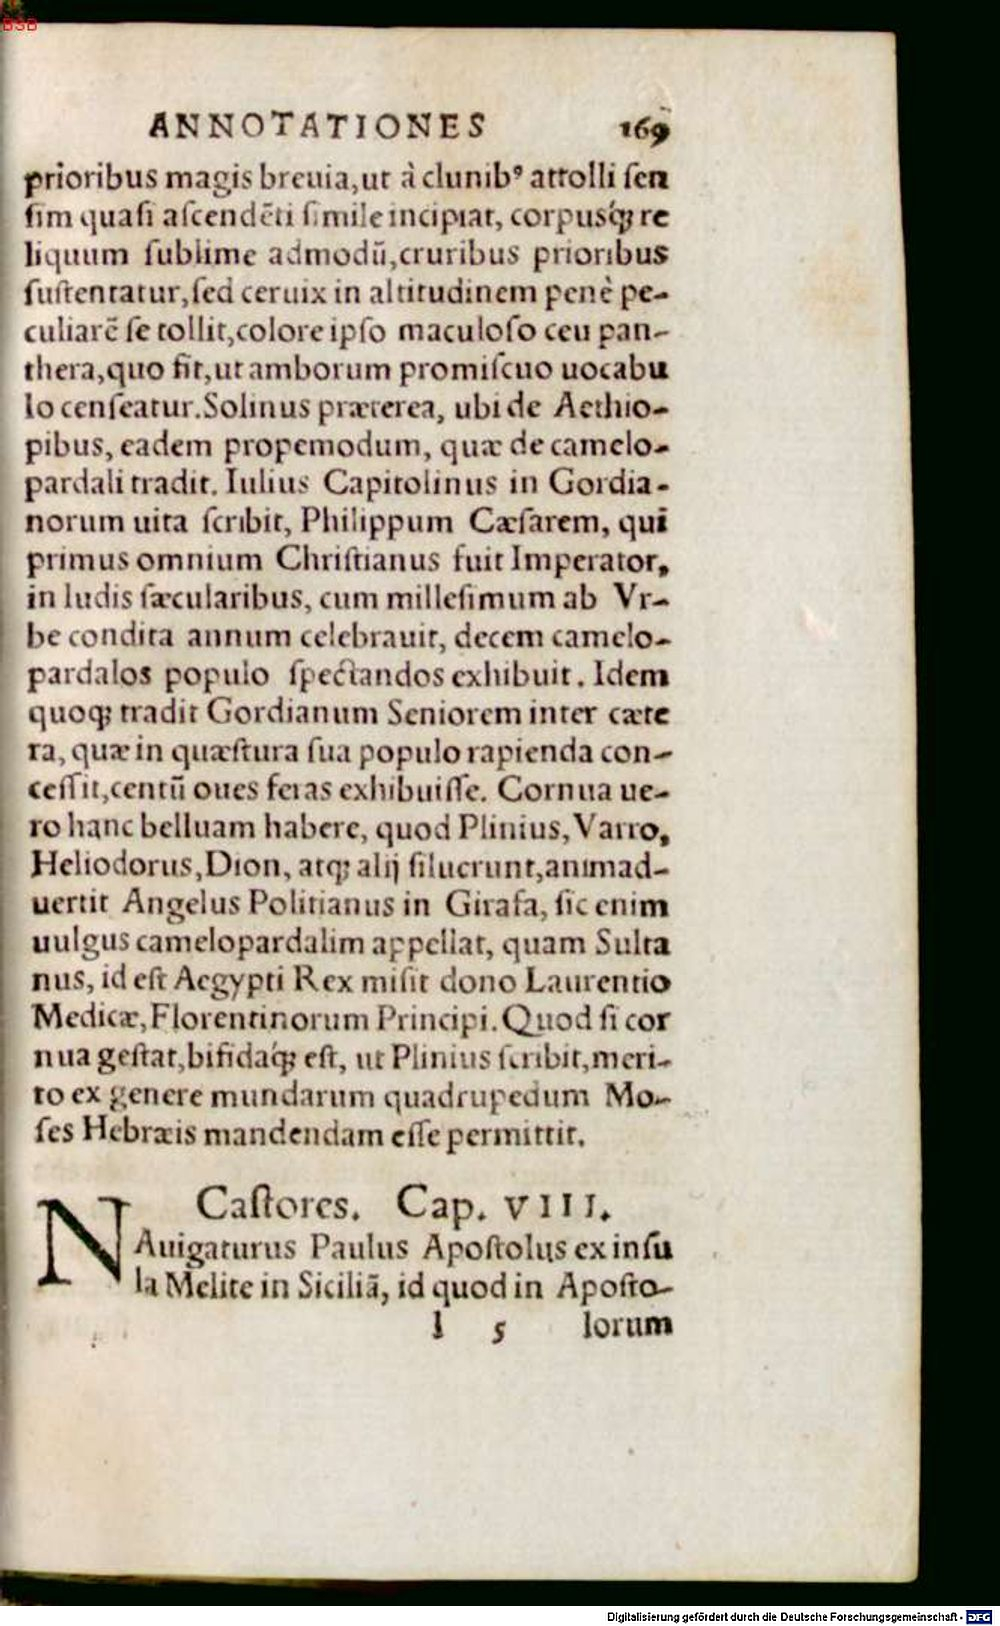 BSB
ANNOTATIONES 169
prioribus magis breuia,ut à clunibꝰ attolli ſen
ſim quaſi aſcendēti ſimile incipiat, corpusq́ꝫ re
liquum ſublime admodū,cruribus prioribus
ſuſtentatur,ſed ceruix in altitudinem penè pe-
culiarē ſe tollit,colore ipſo maculoſo ceu pan-
thera,quo fit,ut amborum promiſcuo uocabu
lo cenſeatur.Solinus præterea, ubi de Aethio-
pibus, eadem propemodum, quæ de camelo-
pardali tradit. Iulius Capitolinus in Gordia-
norum uita ſcribit, Philippum Cæſarem, qui
primus omnium Chriſtianus fuit Imperator,
in ludis ſæcularibus, cum milleſimum ab Vr-
be condita annum celebrauit, decem camelo-
pardalos populo ſpectandos exhibuit. Idem
quoqꝫ tradit Gordianum Seniorem inter cæte
ra, quæ in quæſtura ſua populo rapienda con-
ceſſit,centū oues feras exhibuiſſe. Cornua ue-
ro hanc belluam habere, quod Plinius, Varro,
Heliodorus, Dion, atqꝫ alij ſiluerunt,animad-
uertit Angelus Politianus in Girafa, ſic enim
uulgus camelopardalim appellat, quam Sulta
nus, id eſt Aegypti Rex miſit dono Laurentio
Medicæ, Florentinorum Principi. Quod ſi cor
nua geſtat,bifidaq́ꝫ eſt, ut Plinius ſcribit,meri-
to ex genere mundarum quadrupedum Mo-
ſes Hebræis mandendam eſſe permittit.
Caſtores. Cap. VIII.
NAuigaturus Paulus Apoſtolus ex inſu
la Melite in Siciliā, id quod in Apoſto-
l 5 lorum
Digitalisierung gefördert durch die Deutsche Forschungsgemeinschaft - DFG